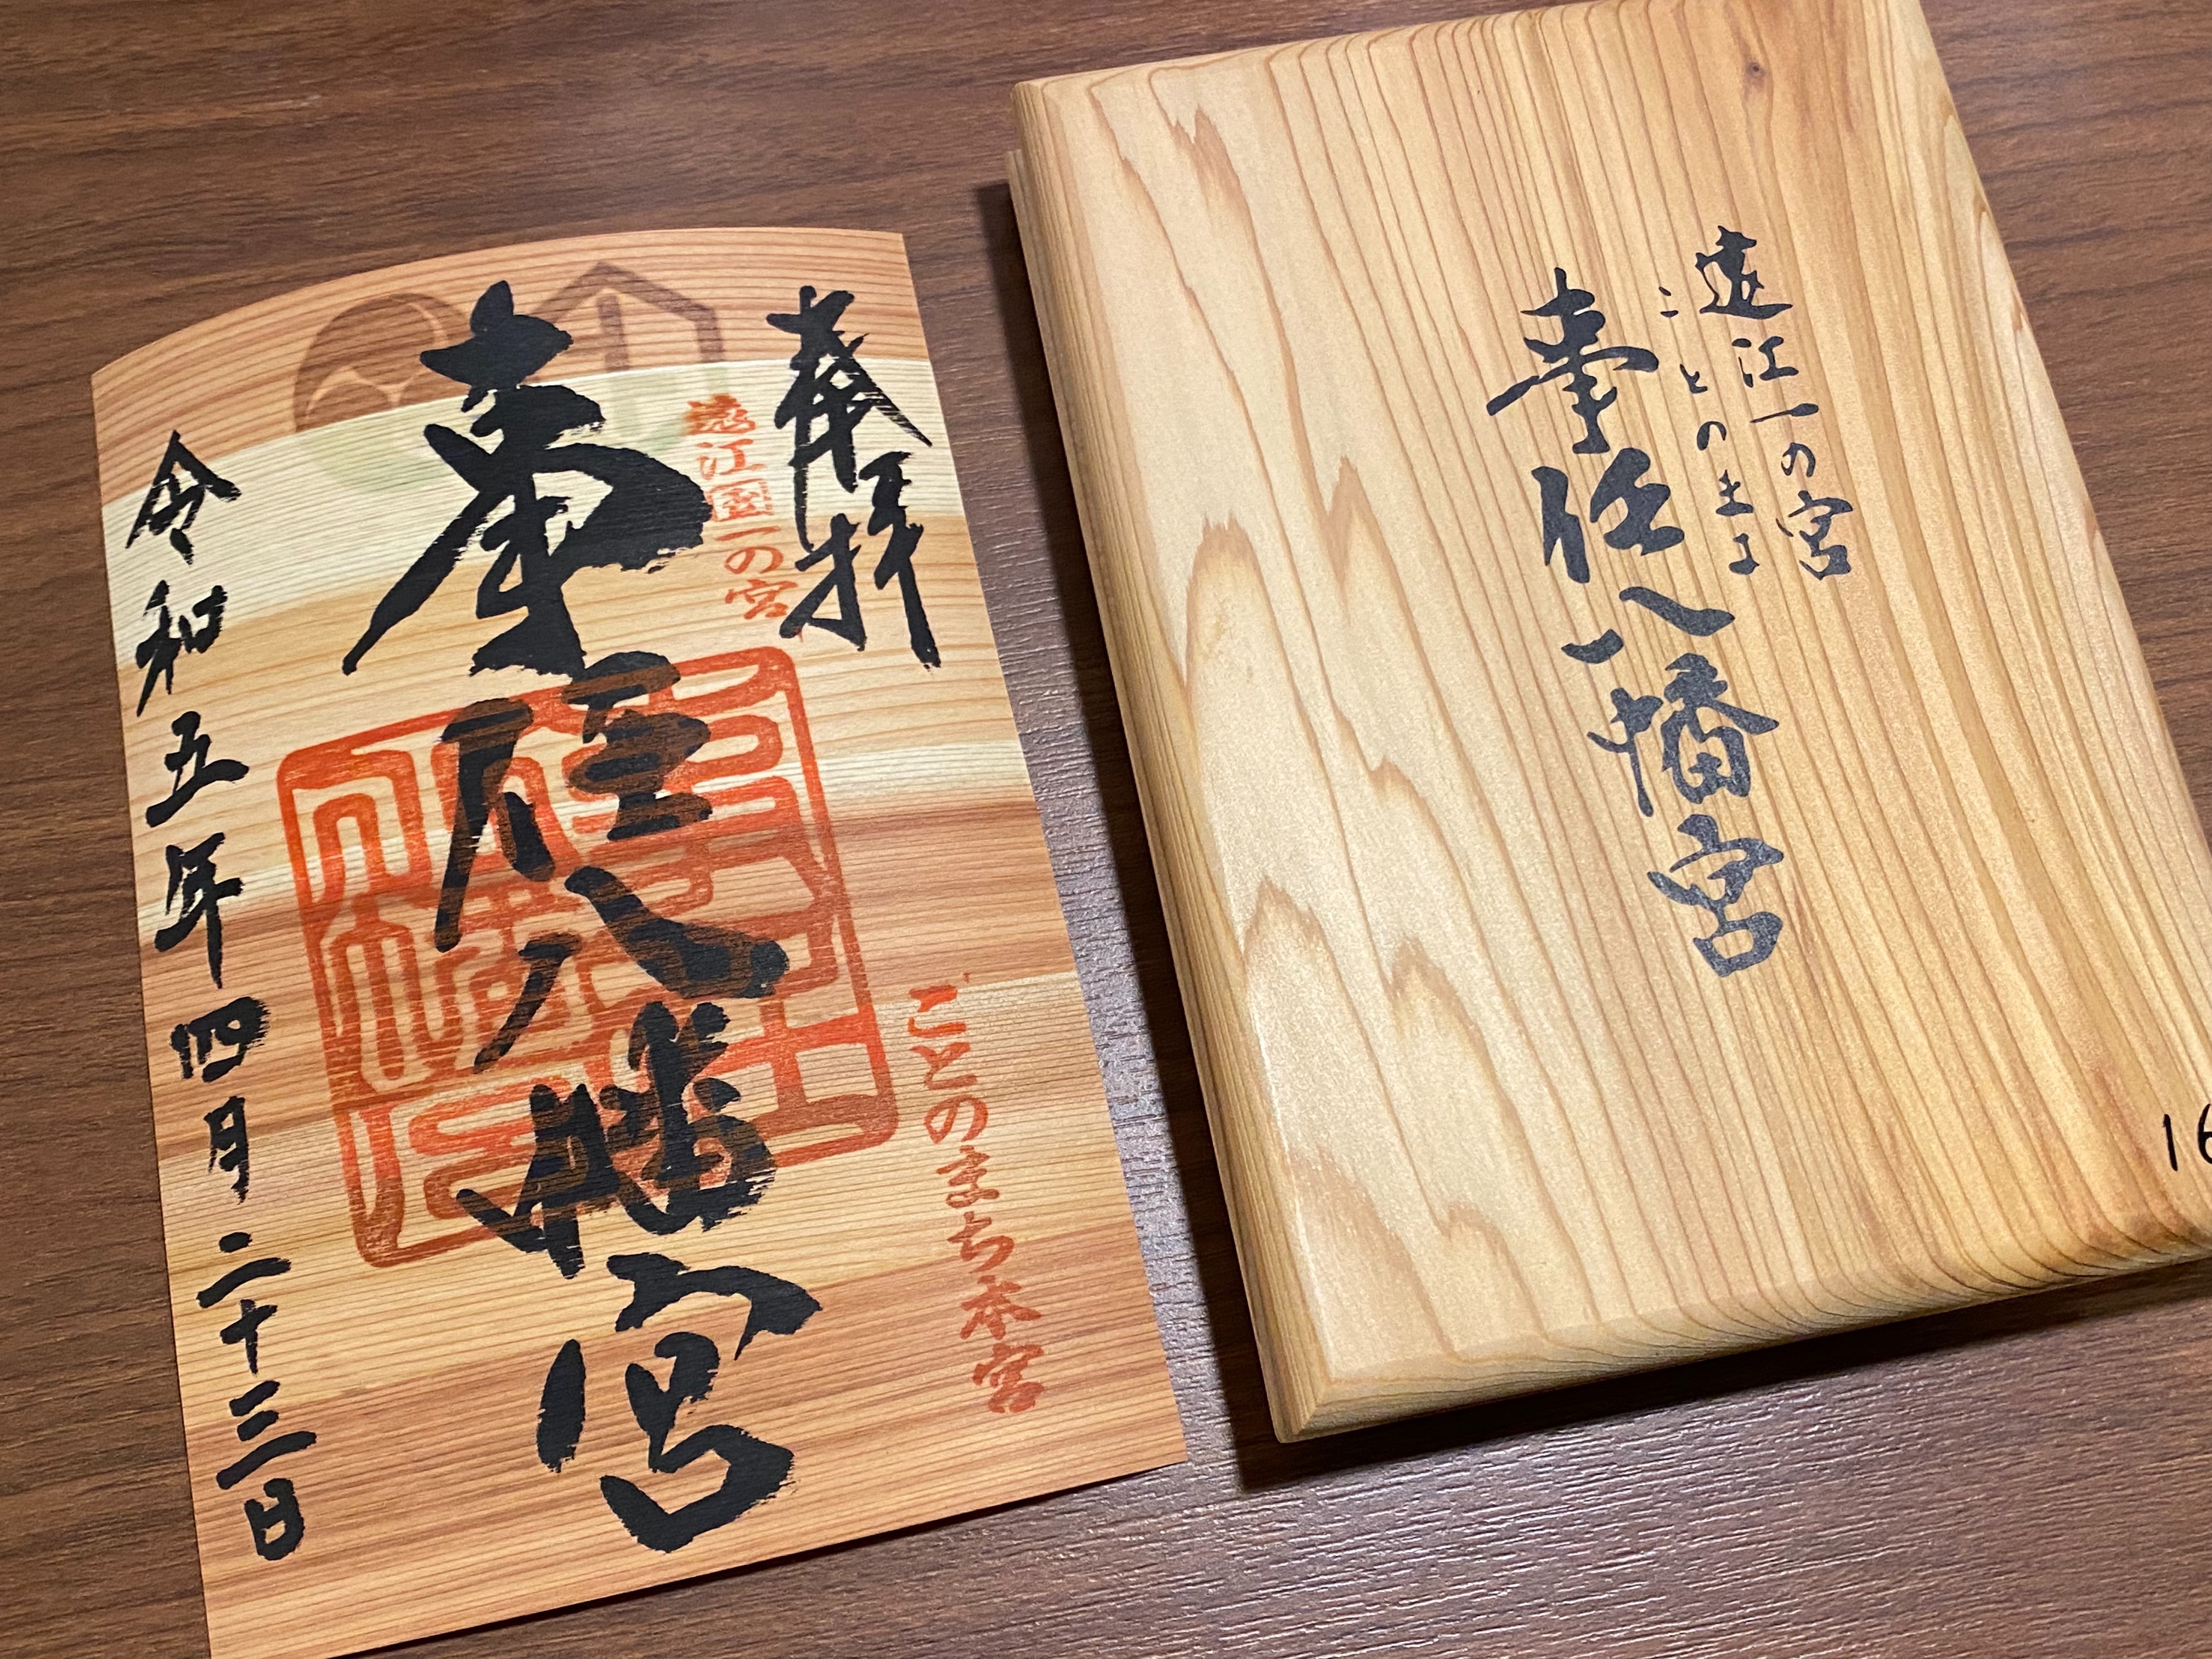 奉拝
遠江国一の宮
事任八幡宮
ことのまち本宮
令和五年四月二十三日
遠江一の宮
ことのまま
事任八幡宮
16